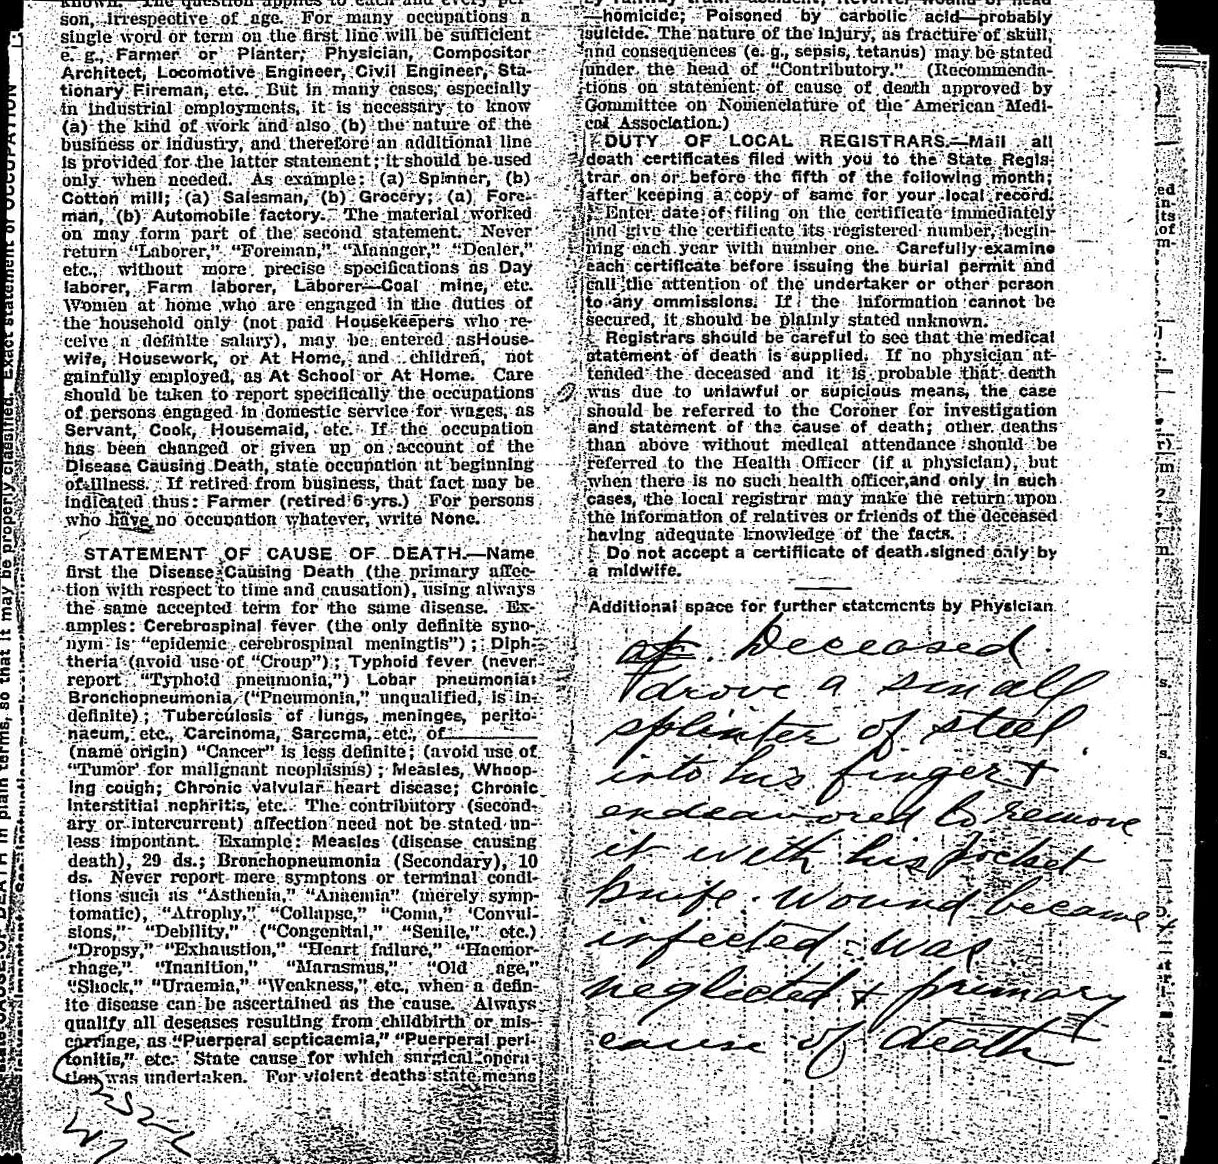 son, irrespective of age. For many occupations a
single word or term on the first line will be sufficient
e. g., Farmer or Planter; Physician, Compositor
Architect, Locomotive Engineer, Civil Engineer, Sta-
tionary Fireman, etc. But in many cases, especially
in industrial employments, it is necessary to know
(a) the kind of work and also (b) the nature of the
business or industry, and therefore an additional line
is provided for the latter statement; it should be used
only when needed. As example: (a) Spinner, (b)
Cotton mill; (a) Salesman, (b) Grocery; (a) Fore-
man, (b) Automobile factory. The material worked
on may form part of the second statement. Never
return "Laborer," "Foreman," "Manager," "Dealer,"
etc., without more precise specifications as Day
laborer, Farm laborer, Laborer—Coal mine, etc.
Women at home who are engaged in the duties of
the household only (not paid Housekeepers who re-
ceive a definite salary), may be entered asHouse-
wife, Housework, or At Home, and children, not
gainfully employed, as At School or At Home. Care
should be taken to report specifically the occupations
of persons engaged in domestic service for wages, as
Servant, Cook, Housemaid, etc. If the occupation
has been changed or given up on account of the
Disease Causing Death, state occupation at beginning
of illness. If retired from business, that fact may be
indicated thus: Farmer (retired 6 yrs.) For persons
who have no occupation whatever, write None.
STATEMENT OF CAUSE OF DEATH.—Name
first the Disease Causing Death (the primary affec-
tion with respect to time and causation), using always
the same accepted term for the same disease. Ex-
amples: Cerebrospinal fever (the only definite syno-
nym is "epidemic cerebrospinal meningtis"); Diph-
theria (avoid use of "Croup"); Typhoid fever (never
report "Typhoid pneumonia,") Lobar pneumonia:
Bronchopneumonia ("Pneumonia," unqualified, is in-
definite); Tuberculosis of lungs, meninges, perito-
naeum, etc., Carcinoma, Sarcoma, etc., of
(name origin) "Cancer" is less definite; (avoid use of
"Tumor' for malignant neoplasms); Measles, Whoop-
ing cough; Chronic valvular heart disease; Chronic
interstitial nephritis, etc. The contributory (second-
ary or intercurrent) affection need not be stated un-
less important. Example: Measles (disease causing
death), 29 ds.; Bronchopneumonia (Secondary), 10
ds. Never report mere symptons or terminal condi-
tions such as "Asthenia," "Anaemia" (merely symp-
tomatic), "Atrophy," "Collapse," "Coma," 'Convul-
sions," "Debility," ("Congenital," "Senile," etc.)
"Dropsy," "Exhaustion," "Heart failure," "Haemor-
rhage," "Inanition," "Marasmus," "Old age,"
"Shock," "Uraemia," "Weakness," etc., when a defin-
ite disease can be ascertained as the cause. Always
qualify all deseases resulting from childbirth or mis-
carriage, as "Puerperal septicaemia," "Puerperal peri-
tonitis," etc. State cause for which surgical opera-
tion was undertaken. For violent deaths state means
—homicide; Poisoned by carbolic acid—probably
suicide. The nature of the injury, as fracture of skull,
and consequences (e. g., sepsis, tetanus) may be stated
under the head of "Contributory." (Recommenda-
tions on statement of cause of death approved by
Committee on Nomenclature of the American Medi-
cal Association.)
DUTY OF LOCAL REGISTRARS.—Mail all
death certificates filed with you to the State Regis-
trar on or before the fifth of the following month;
after keeping a copy of same for your local record.
Enter date of filing on the certificate immediately
and give the certificate its registered number, begin-
ning each year with number one. Carefully examine
each certificate before issuing the burial permit and
call the attention of the undertaker or other person
to any ommissions. If the information cannot be
secured, it should be plainly stated unknown.
Registrars should be careful to see that the medical
statement of death is supplied. If no physician at-
tended the deceased and it is probable that death
was due to unlawful or supicious means, the case
should be referred to the Coroner for investigation
and statement of the cause of death; other deaths
than above without medical attendance should be
referred to the Health Officer (if a physician), but
when there is no such health officer,and only in such
cases, the local registrar may make the return upon
the information of relatives or friends of the deceased
having adequate knowledge of the facts.
Do not accept a certificate of death signed only by
a midwife.
Additional space for further statements by Physician
Deceased
drove a small
splinter of steel
into his finger &
endeavored to remove
it with his pocket
knife. Wound became
infected was
neglected & primary
cause of death